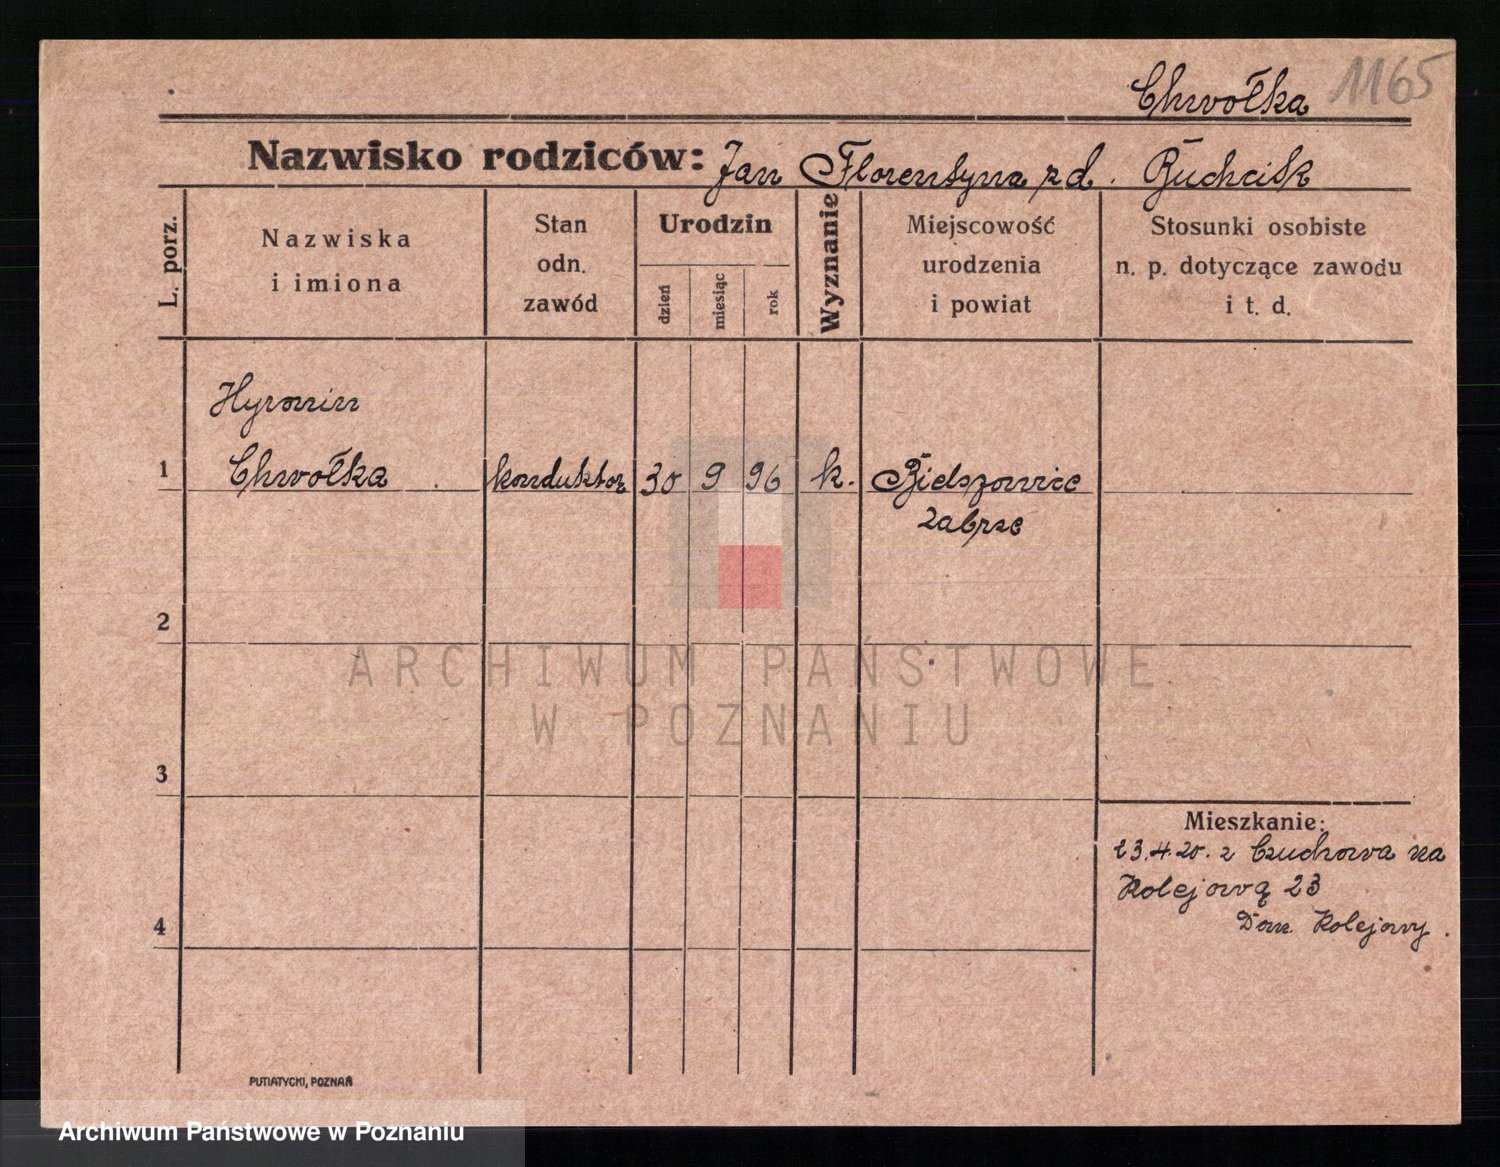 Chwołka 1165
Nazwisko rodziców: Jan Florentyna z d. Buchcik
L. porz.
Nazwiska
i imiona
Stan
odn.
zawód
Urodzin
dzień
miesiąc
rok
Wyznanie
Miejscowość
urodzenia
i powiat
Stosunki osobiste
n. p. dotyczące zawodu
i t. d.
Hyronim
1 Chwołka konduktor 30 9 96 k. Bielszowice
Zabrze
2
ARCHIWUM PAŃSTWOWE
W POZNANIU
3
Mieszkanie:
23.4.20. z Czuchowa na
Kolejową 23
4 Dom Kolejowy.
PUTIATYCKI, POZNAŃ
Archiwum Państwowe w Poznaniu